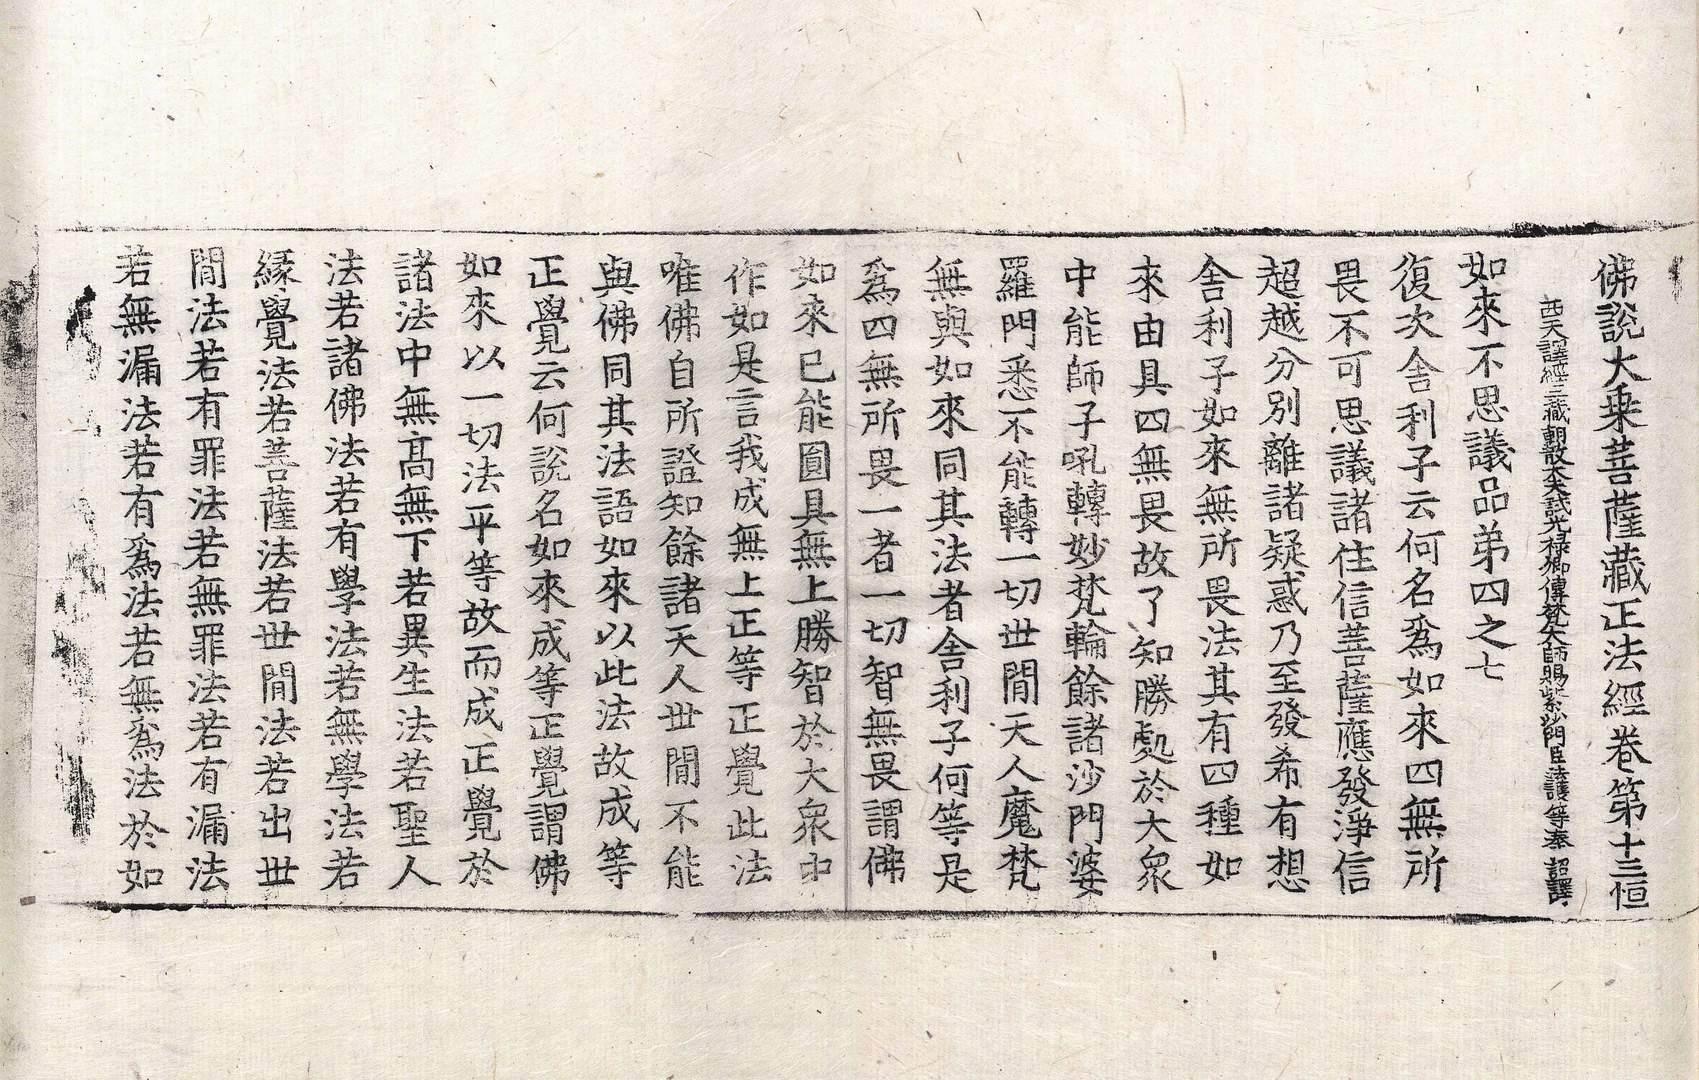 佛說大乘菩薩藏正法經卷第十三恒
西天譯經三藏朝散大夫試光祿卿傳梵大師賜紫沙門臣法護等奉 詔譯
如來不思議品第四之七
復次舍利子云何名爲如來四無所
畏不可思議諸住信菩薩應發淨信
超越分別離諸疑惑乃至發希有想
舍利子如來無所畏法其有四種如
來由具四無畏故了知勝處於大衆
中能師子吼轉妙梵輪餘諸沙門婆
羅門悉不能轉一切世間天人魔梵
無與如來同其法者舍利子何等是
爲四無所畏一者一切智無畏謂佛
如來已能圓具無上勝智於大衆中
作如是言我成無上正等正覺此法
唯佛自所證知餘諸天人世間不能
與佛同其法語如來以此法故成等
正覺云何說名如來成等正覺謂佛
如來以一切法平等故而成正覺於
諸法中無高無下若異生法若聖人
法若諸佛法若有學法若無學法若
緣覺法若菩薩法若世間法若出世
間法若有罪法若無罪法若有漏法
若無漏法若有爲法若無爲法於如